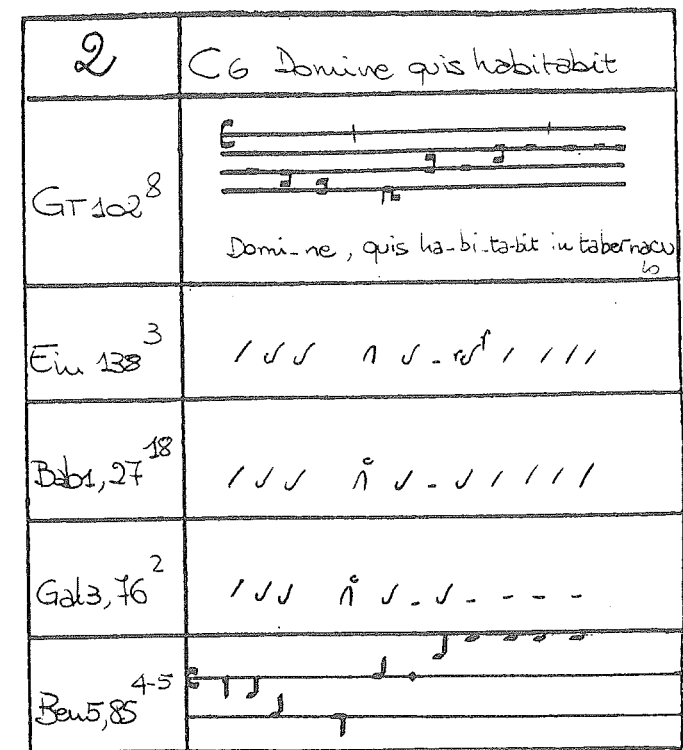 2 C6 Domine quis habitabit
GT 102 8
Domi-ne, quis ha-bi-ta-bit in tabernacu
lo
Ein 138 3
Bab1, 27 18
Gal3, 76 2
Ben5, 85 4-5